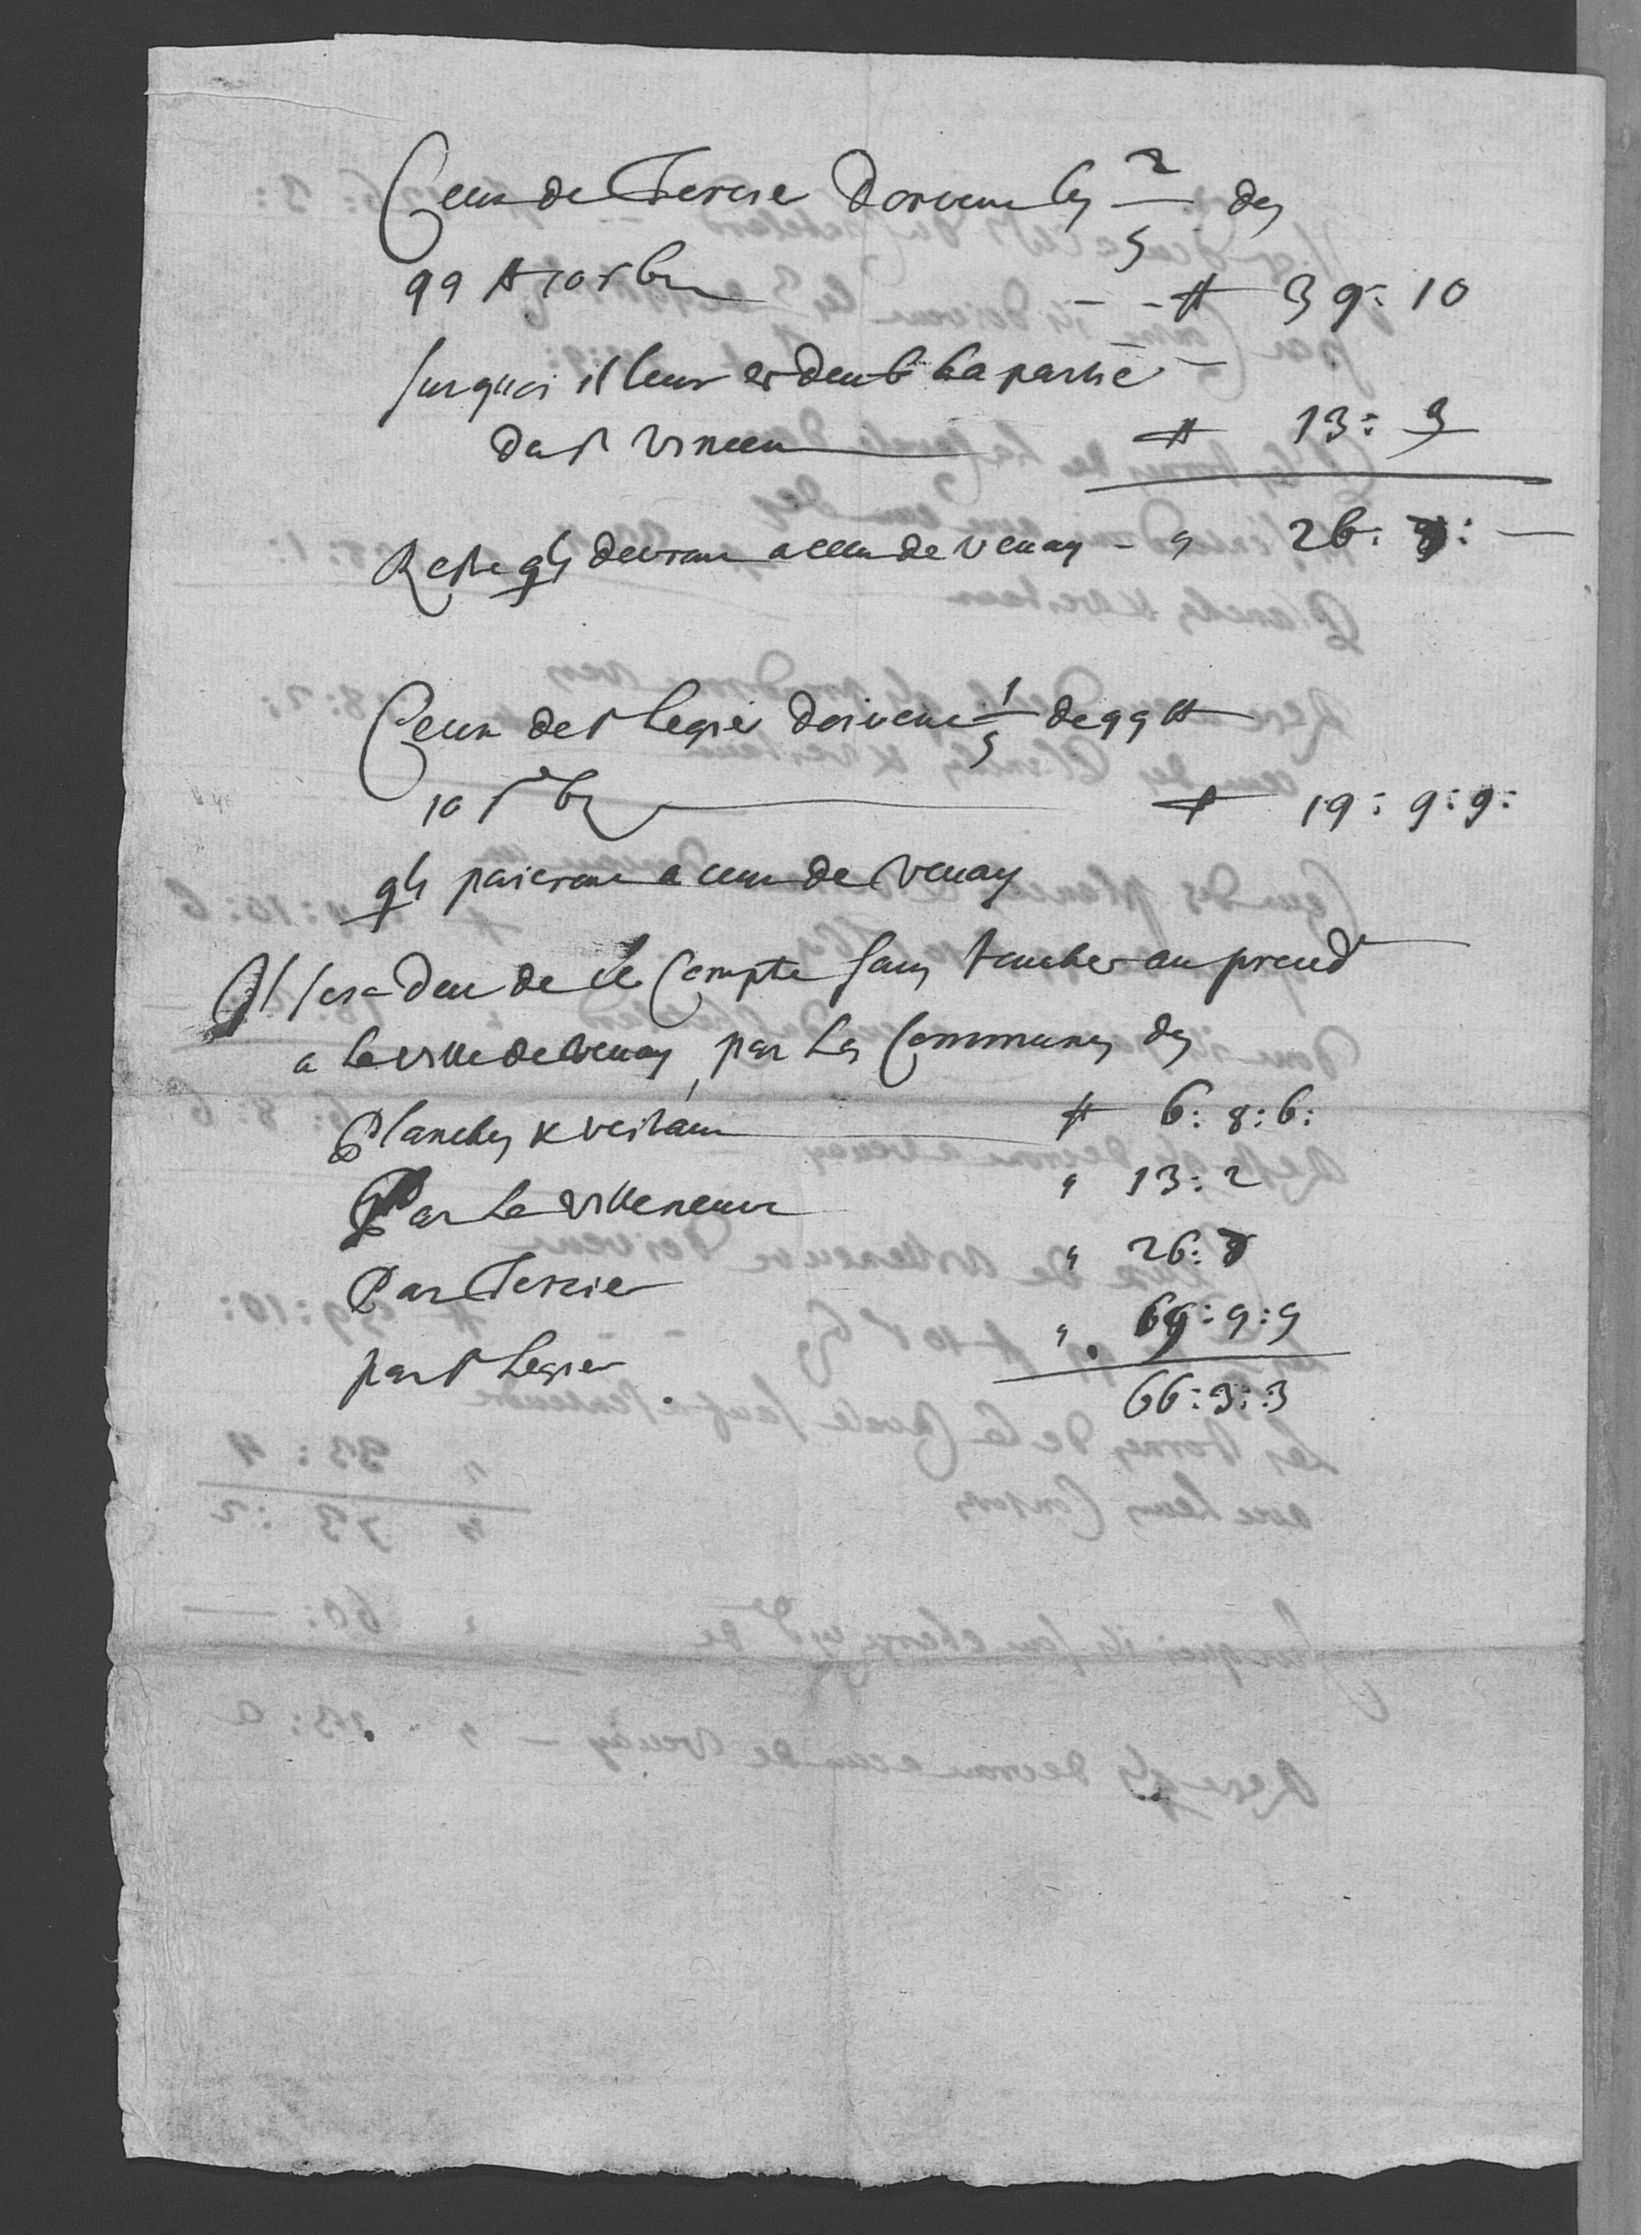 Ceux de Tercie doivent les 2/5 des
99 ℔ 10 s b - - ℔ 39: 10
surquoi il leur es deub la partie -
da st vincen ℔ 13: 3
Reste qls devront a ceux de Vevay - " 26: 7: -
Ceux de st legie doivent 1/5 de 99 ℔
10 s b ℔ 19: 9: 9:
qls paieront a ceux de Vevay
Il sera deu de ce Compte sans toucher au preud
a la ville de Vevay par les Communes des
Planches & veitaux ℔ 6: 8: 6:
Par la villeneuve " 13: 2
Par Tercie " 26: 7
par st legier " 19: 9: 9
66: 3: 3